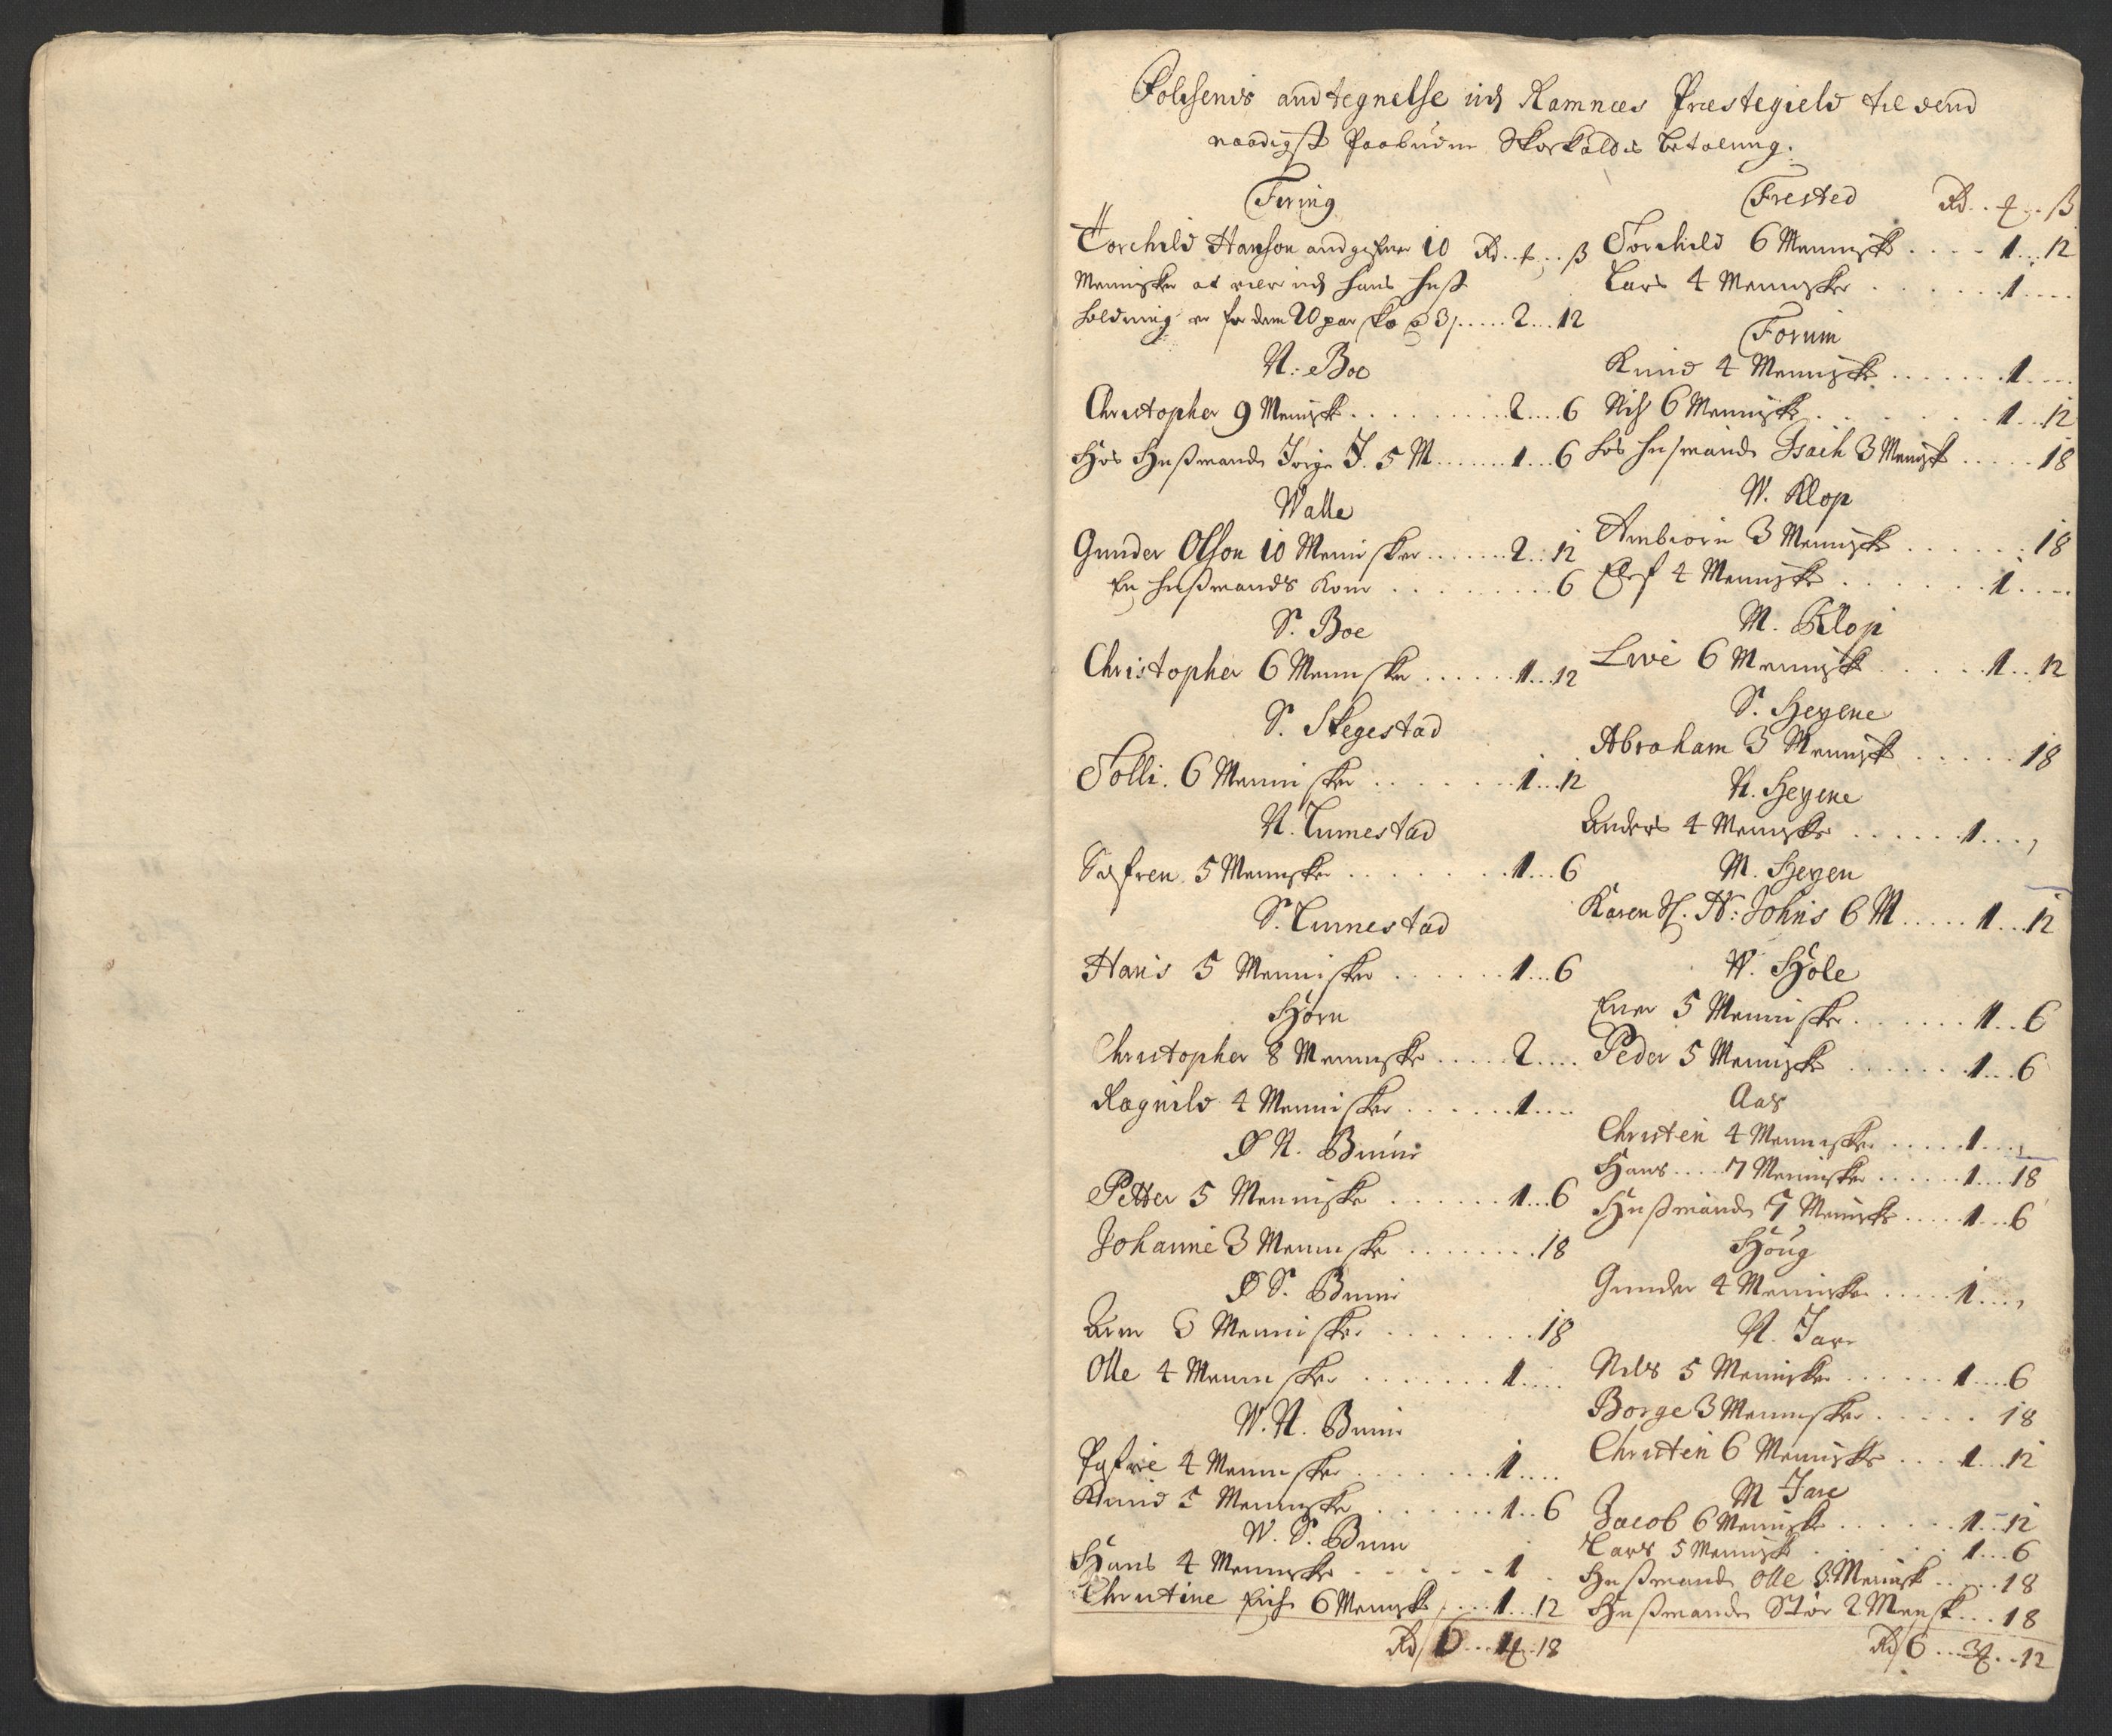 Folchenis andtegnelse udj Ramnæs Præstegield til dend
naadigst Paabudne Skoskatdis betaling.
Firing
Torchild Hanson andgifver 10 Rd..&..ß
Mennisker at være udj hans huß
holdning er for dem 20 par sko a 3 ß.....2...12
N. Boe
Christopher 9 Menisk.........2....6
Hos Hußmand Jörge J. 5 M.......1...6
Walle
Gunder Olson 10 Mennisker......2...12
En hußmands Kone.........6
S. Boe
Christopher 6 Menniske......1...12
S. Skegestad
Tolli. 6 Mennisker.......1...12
N. Linnestad
Safren 5 Mennisker.......1...6
S. Linnestad
Hans 5 Mennisker......1...6
Horn
Christopher 8 Menniske.....2....
Ragnild 4 Mennisker......1....
Ø N. Buun
Petter 5 Menniske......1...6
Johanne 3 Menniske........18
Ø S. Buun
3 Mennisker.......18
Olle 4 Mennisker.......1....
W. N. Buun
4 Mennisker.......1....
Knud 5 Menniske.......1..6
W. S. Buun
Hans 4 Menniske......1
Christine 6 Menniske....1...12
Rd 6...1&..18
Frested Rd..&..ß
Torchild 6 Menniske....1...12
Lars 4 Mennisker.......1....
Forum
Knud 4 Menniske.......1....
Nils 6 Menniske.......1...12
hos hußmand Isach 3 Menisk.....18
W. Klop
Ambiorn 3 Menniske......18
Elef 4 Menniske......1....
M. Klop
Live 6 Mennisk.....1...12
S. Heyene
Abraham 3 Mennisk.....18
N. Heyene
Anders 4 Menniske......1...,
M. Heyen
Karen Sl. N: Johns 6 M.....1...12
W. Hole
Ener 5 Menniske......1..6
Peder 5 Menniske......1...6
Aas
Christen 4 Mennisker.....1...,
Hans....7 Mennisker......1...18
Hußmand 7 Meniske.....1...6
Houg
Gunder 4 Mennisker.....1...,
N. Jare
Nils 5 Mennisker......1....6
Borge 3 Mennisker.....18
Christen 6 Menniske...1...12
M Jare
Jacob 6 Menniske......1...12
Lars 5 Mennisk......1...6
Hußmand Olle 3 Menisk.....18
Hußmanden Stor 2 Mensk...18
Rd 6...3&..12